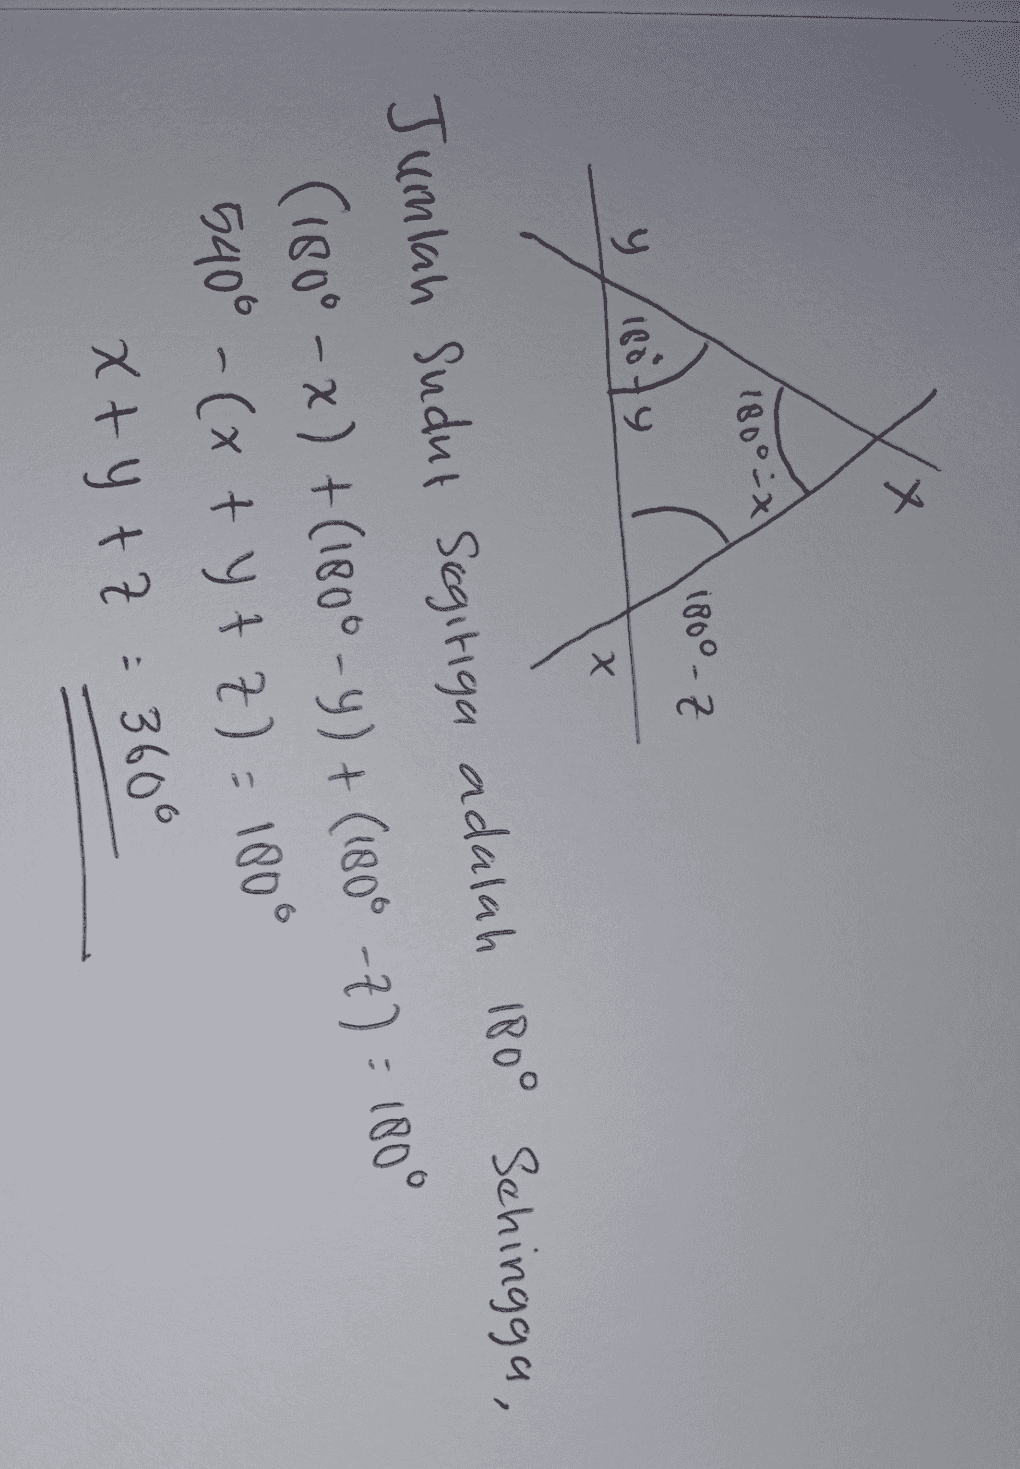 x
180° - x
180° - z
y
180° - y
x
Jumlah Sudut Segitiga adalah 180° Sehingga,
(180° - x) + (180° - y) + (180° - z) = 180°
540° - (x + y + z) = 180°
x + y + z = 360°